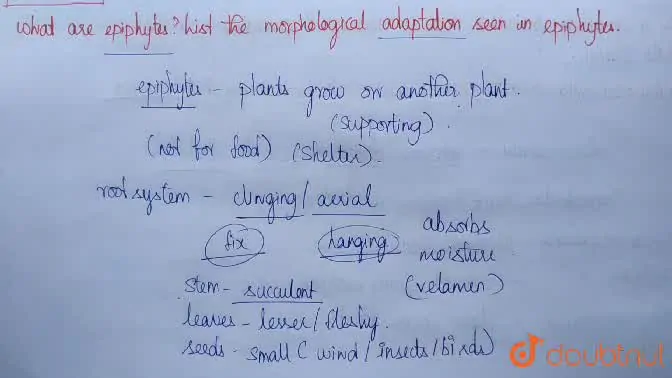 What are epiphytes? List the morphological adaptation seen in epiphytes.
epiphytes - plants grow on another plant.
(supporting).
(not for food) (Shelter).
root system - clinging/aerial
fix hanging absorbs
moisture
(velamen)
stem - succulent
leaves - lesser/fleshy.
seeds - small (wind/insects/birds)
doubtnut